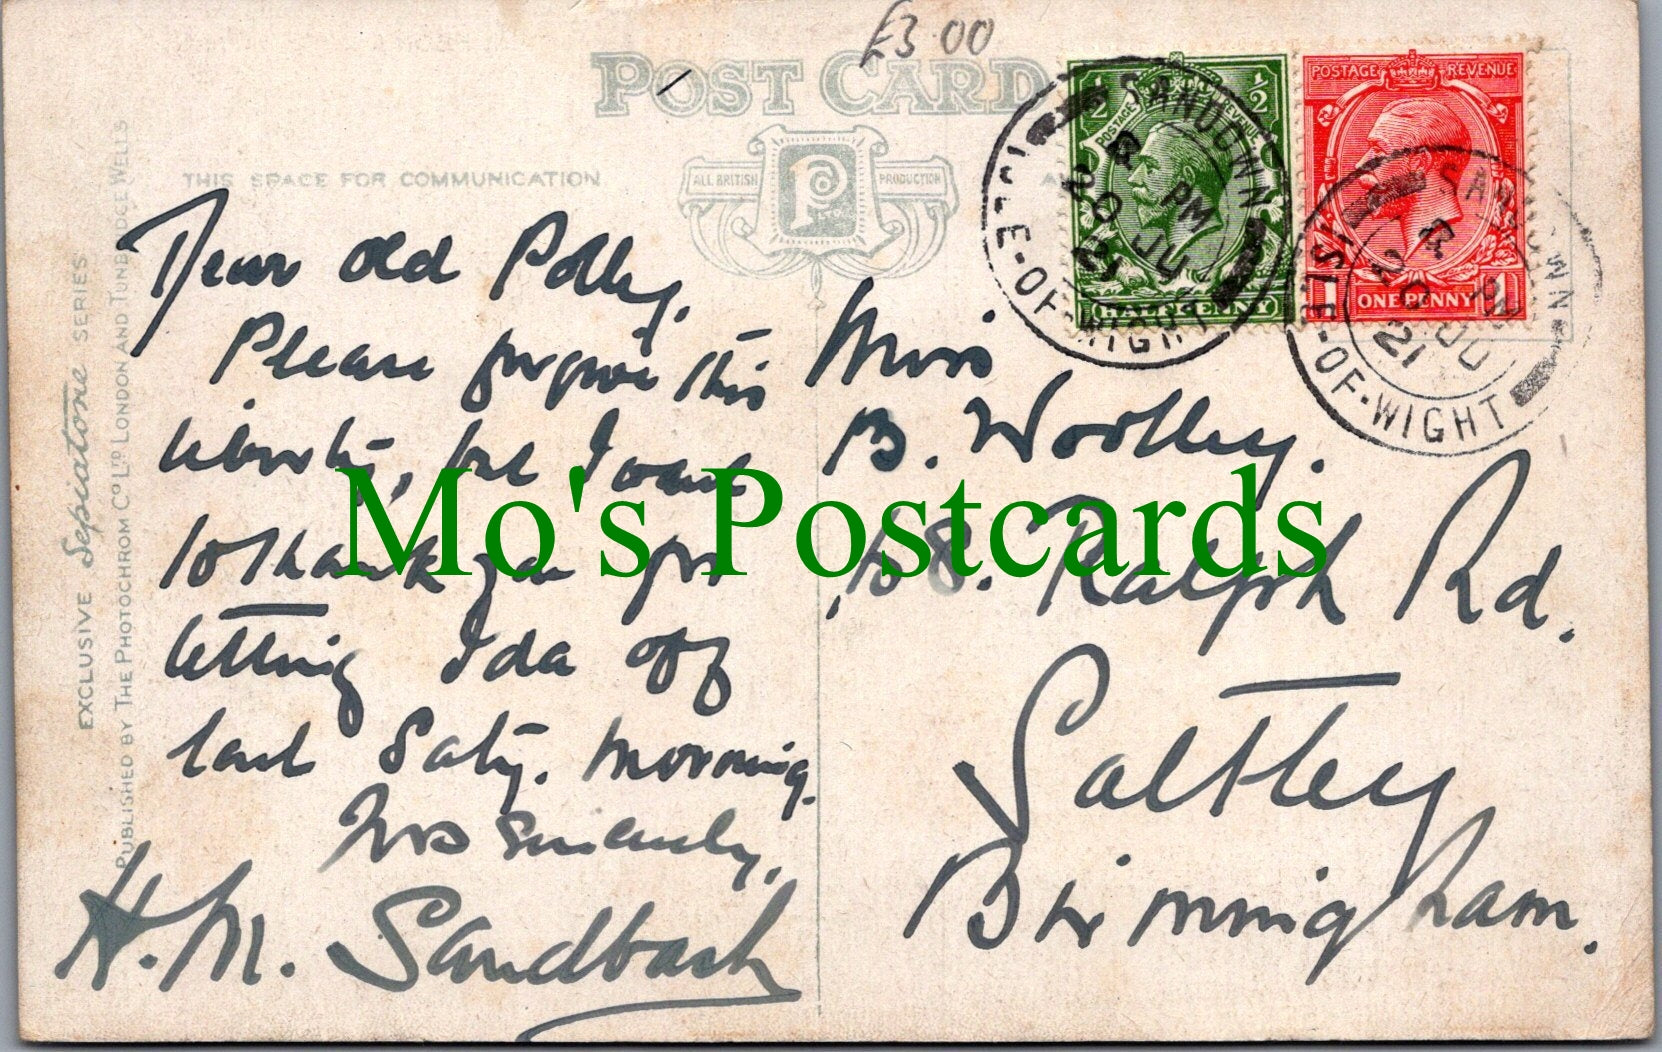 £3.00
POST CARD
THIS SPACE FOR COMMUNICATION
ALL BRITISH PRODUCTION
EXCLUSIVE Sepiatone SERIES
PUBLISHED BY THE PHOTOCHROM Co LTD LONDON AND TUNBRIDGE WELLS
½ ½
POSTAGE REVENUE
HALFPENNY
POSTAGE REVENUE
1 ONE PENNY 1
SANDOWN
8 PM
20 JU
21
ISLE-OF-WIGHT
ISLE-OF-WIGHT
Dear old Polly,
Please forgive this
liberty, but I want
to thank you for
letting Ida off
last Saty. morning.
Yrs sincerely,
H. M. Sandbach
Miss
B. Woolley.
68. Ralph Rd.
Saltley
Birmingham.
Mo's Postcards